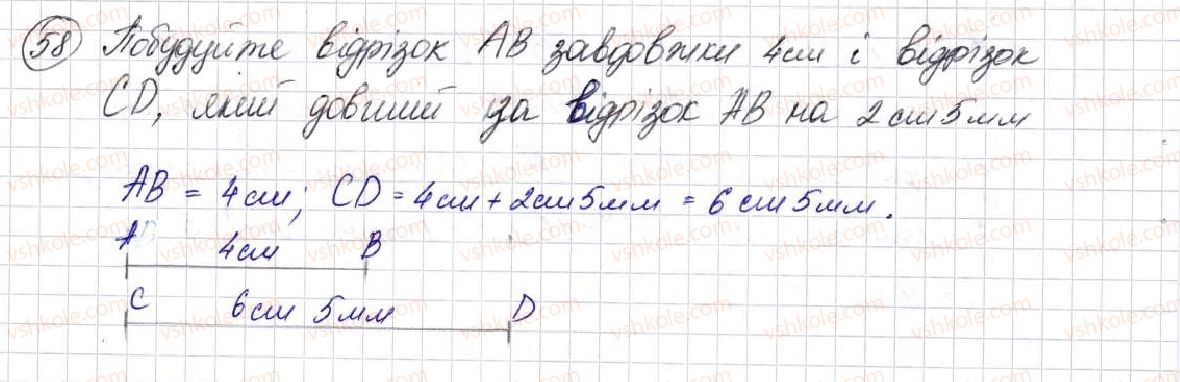 58 Побудуйте відрізок AB завдовжки 4см і відрізок
CD, який довший за відрізок AB на 2см 5мм
AB = 4см; CD = 4см + 2см 5мм = 6см 5мм.
A 4см B
C 6см 5мм D